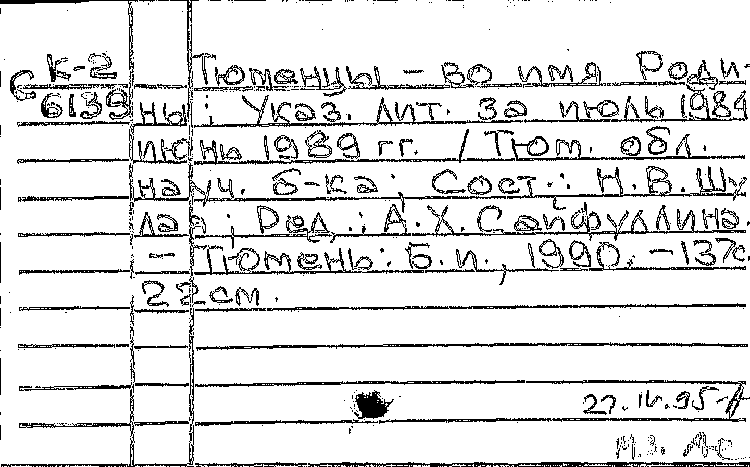 С К-2 Тюменцы - во имя Роди-
6139 ны : Указ. лит. за июль 1984
июнь 1989 гг. / Тюм. обл.
науч. б-ка ; Сост.: Н.В. Шу
лая ; Ред.: А.Х. Сайфуллина.
- Тюмень: Б.и., 1990. - 137с.
22см.
27.IV.95
М.З.